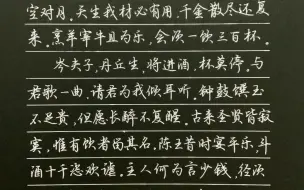 空对月。天生我材必有用，千金散尽还复
来。烹羊宰牛且为乐，会须一饮三百杯。
岑夫子，丹丘生，将进酒，杯莫停。与
君歌一曲，请君为我倾耳听。钟鼓馔玉
不足贵，但愿长醉不复醒。古来圣贤皆寂
寞，惟有饮者留其名。陈王昔时宴平乐，斗
酒十千恣欢谑。主人何为言少钱，径须